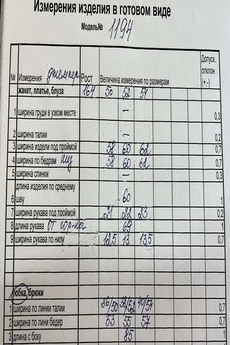 Измерения изделия в готовом виде
Модель№ 1194
№ Измерения джемпер Рост Величина измерения по размерам Допуск. отклон (+ -)
жакет, платье, блуза 164 50 52 54
1 ширина груди в узком месте — 0,3
2 ширина талии —
3 ширина издели под проймой 58 60 62 0,7
4 ширина по бедрам низ 58 60 62 0,7
5 ширина спинки — 0,3
длина изделия по среднему
6 шву 60 1
7 ширина рукава под проймой 21 22 23 0,2
8 длина рукава от гор-ны 69 1
9 ширина рукава по низу 12,5 13 13,5 0,7
юбка, брюки
1 ширина по линии талии 0,7
2 ширина по лини бедер 53 55 57 0,7
3 длина с боку 85 1